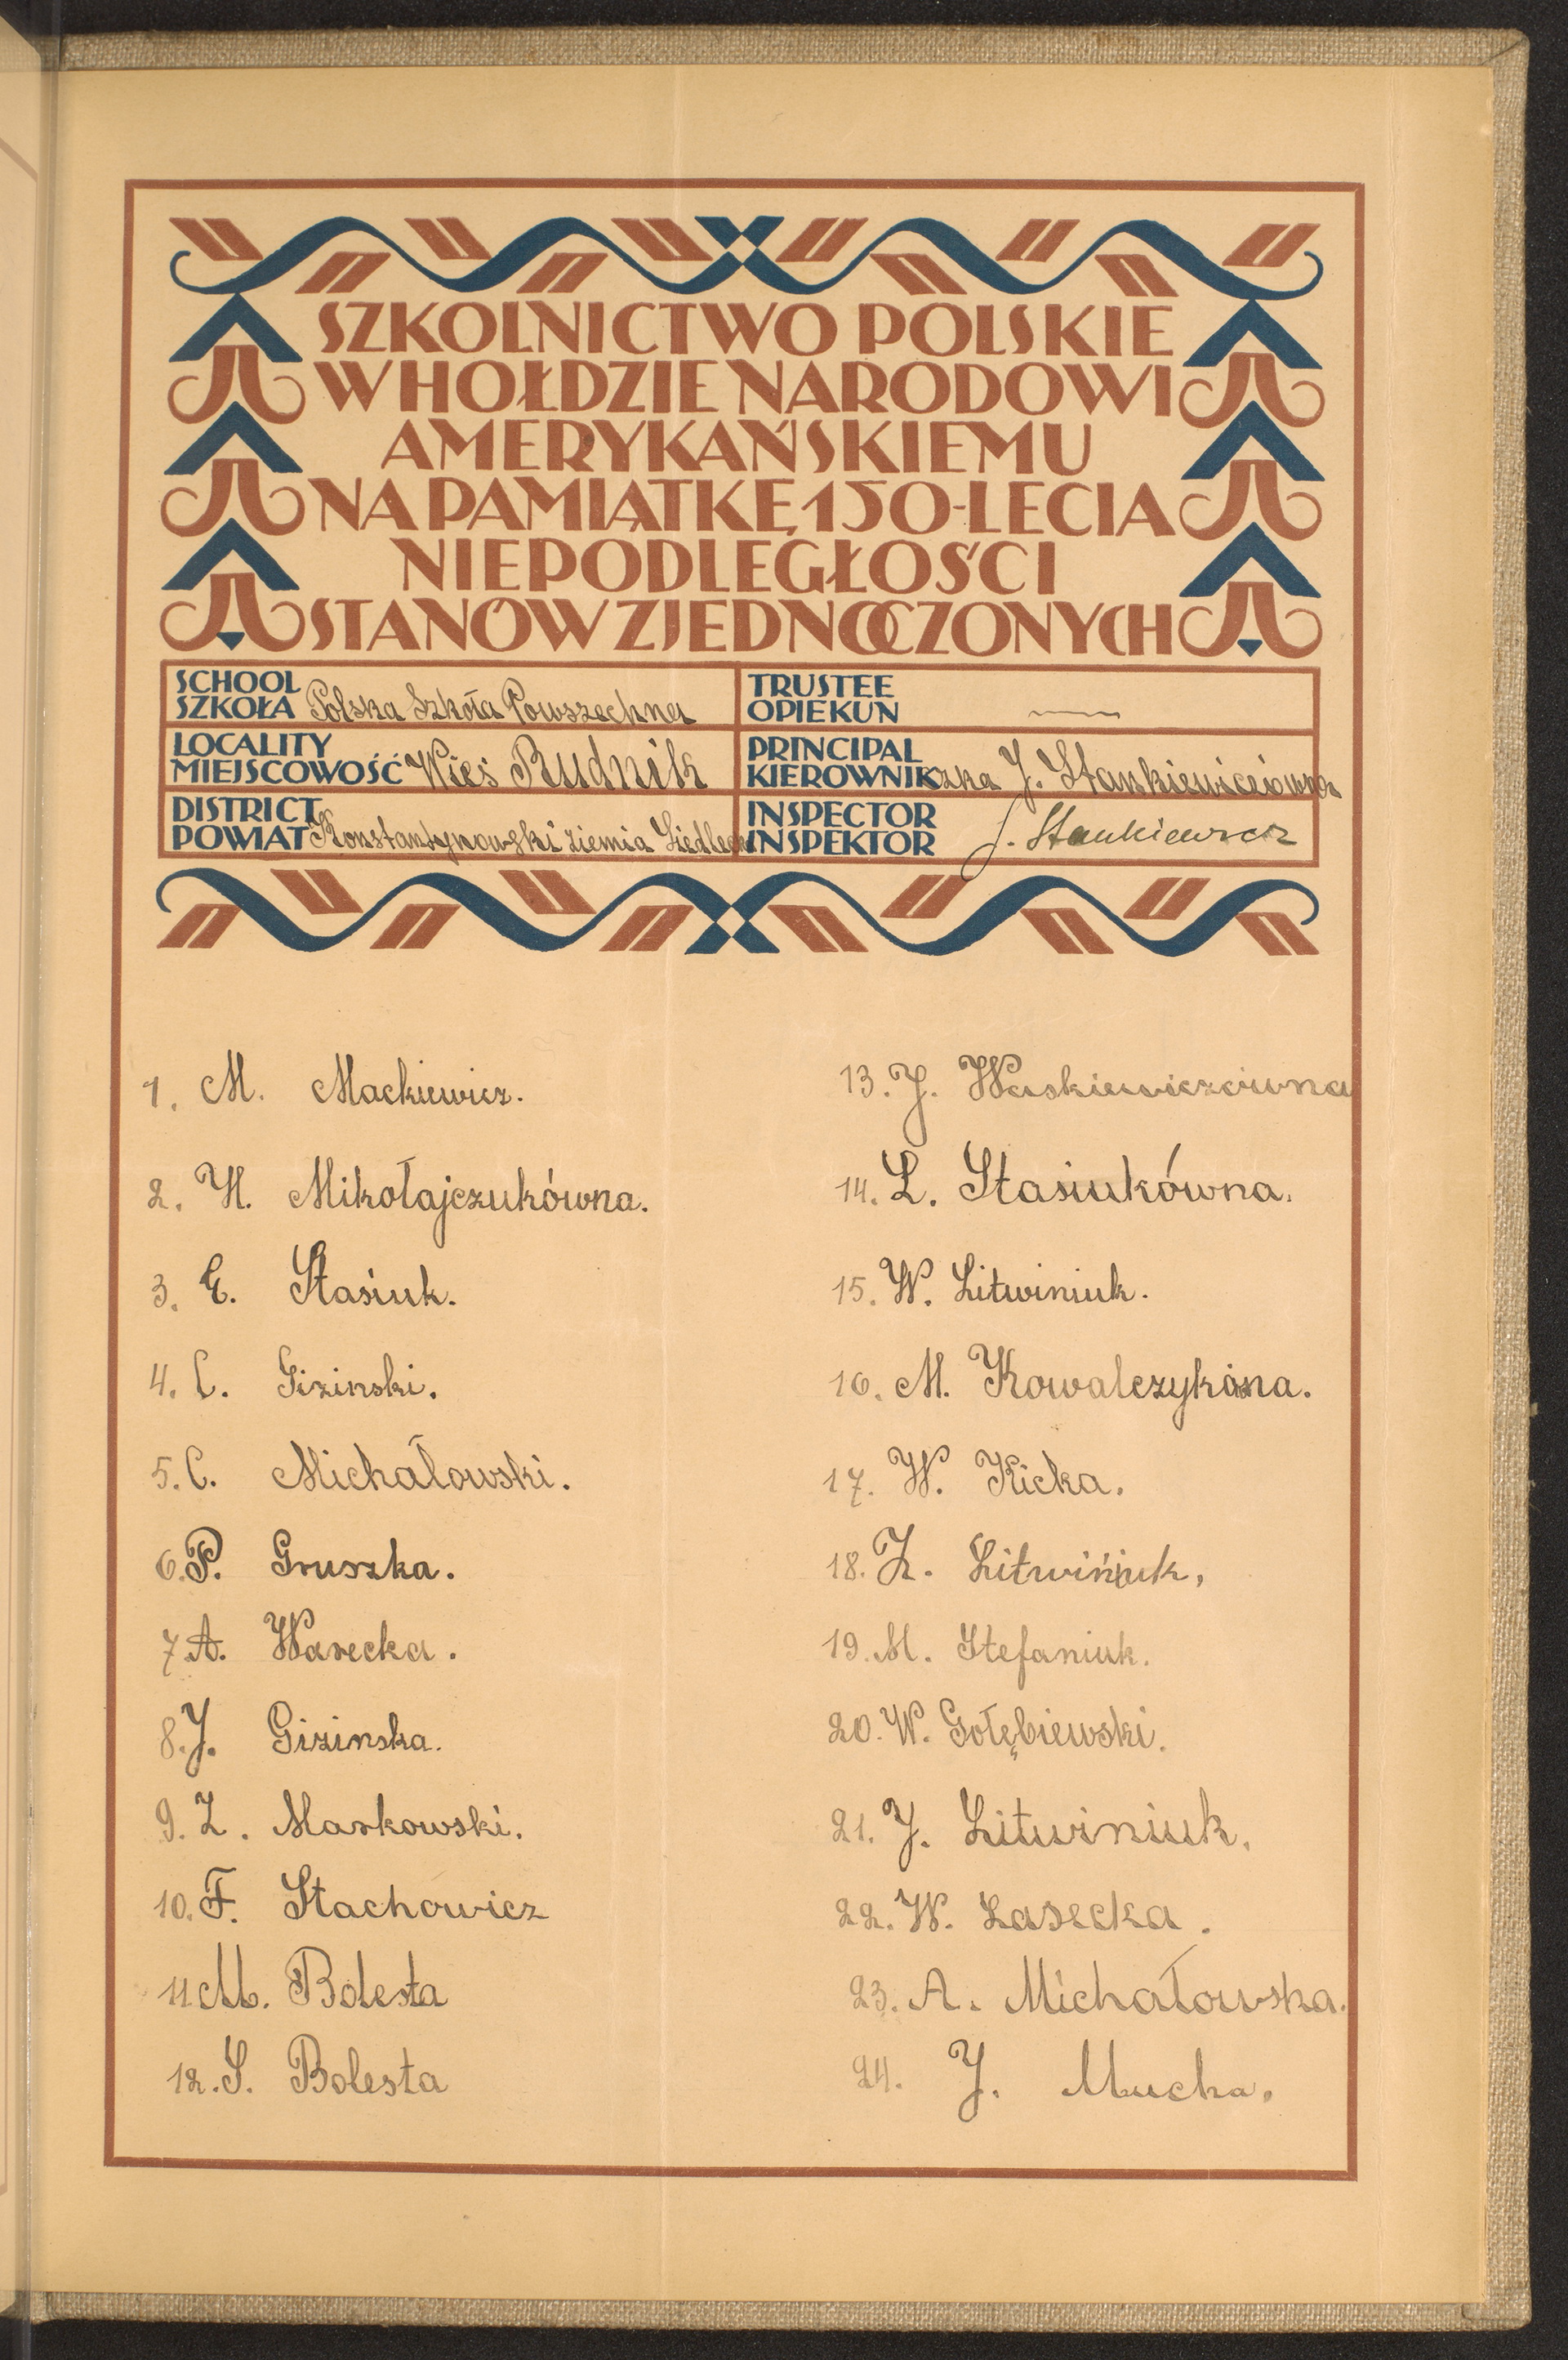 SZKOLNICTWO POLSKIE
W HOŁDZIE NARODOWI
AMERYKAŃSKIEMU
NA PAMIĄTKĘ 150-LECIA
NIEPODLEGŁOŚCI
STANÓW ZJEDNOCZONYCH
SCHOOL
SZKOŁA Polska Szkoła Powszechna
TRUSTEE
OPIEKUN
LOCALITY
MIEJSCOWOŚĆ Wieś Rudnik
PRINCIPAL
KIEROWNIKczka J. Stankiewiczówna
DISTRICT
POWIAT Konstantynowski ziemia
INSPECTOR
INSPEKTOR J. Stankiewicz
1. M. Mackiewicz.
2. H. Mikołajczukówna.
3. E. Stasiuk.
4. C. Gizinski.
5. C. Michałowski.
6. P. Gruszka.
7. A. Warecka.
8. J. Gizinska.
9. Z. Markowski.
10. F. Stachowicz
11. M. Bolesta
12. S. Bolesta
13. J. Waskiewiczówna
14. L. Stasiukówna.
15. W. Litwiniuk.
16. M.
17. W. Kicka.
18. Z. Litwiniuk,
19. M. Stefaniuk.
20. W. Gołębiewski.
21. J. Litwiniuk.
22. W. Lasecka.
23. A. Michałowska.
24. J. Mucha.